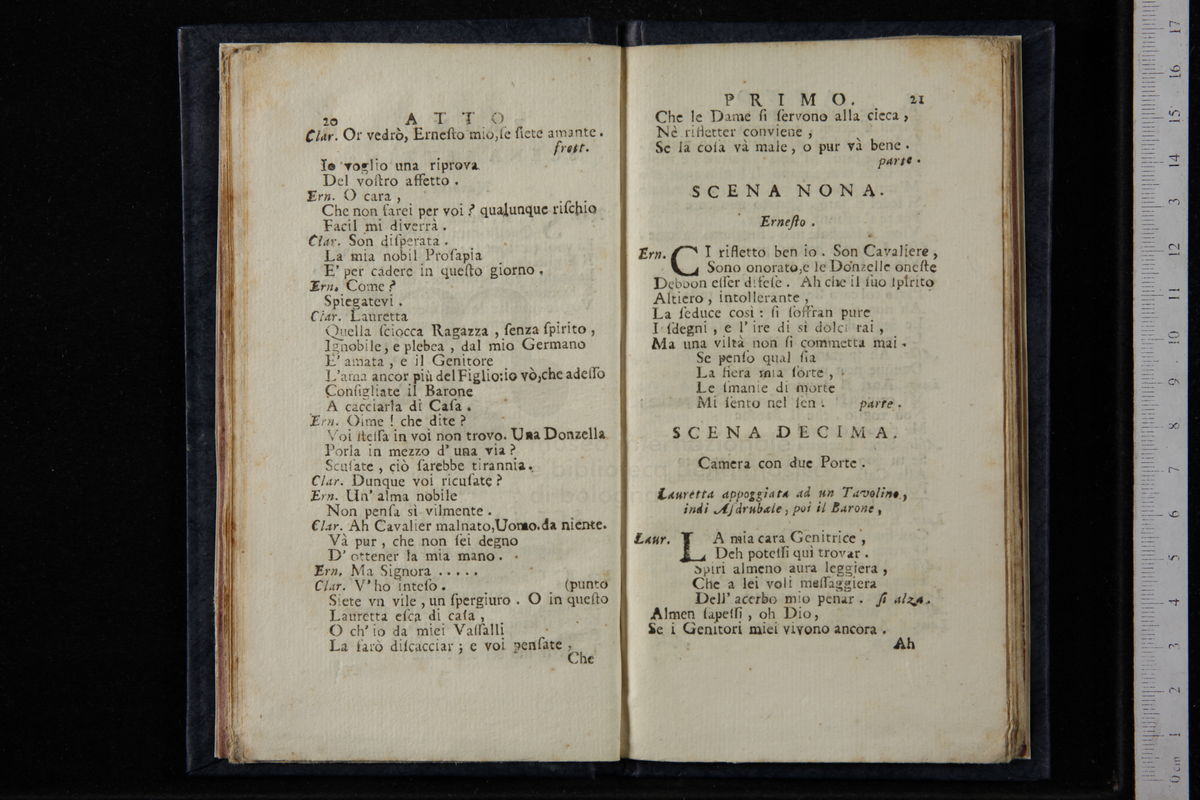 20 ATTO
Clar. Or vedrò, Erneſto mio,ſe ſiete amante.
frett.
Io voglio una riprova
Del voſtro affetto.
Ern. O cara,
Che non farei per voi? qualunque riſchio
Facil mi diverrà.
Clar. Son diſperata.
La mia nobil Proſapia
E' per cadere in queſto giorno.
Ern. Come?
Spiegatevi.
Clar. Lauretta
Quella ſciocca Ragazza, ſenza ſpirito,
Ignobile, e plebea, dal mio Germano
E' amata, e il Genitore
L'ama ancor più del Figlio:io vò,che adeſſo
Conſigliate il Barone
A cacciarla di Caſa.
Ern. Oime! che dite?
Voi ſteſſa in voi non trovo. Una Donzella
Porla in mezzo d'una via?
Scuſate, ciò ſarebbe tirannia.
Clar. Dunque voi ricuſate?
Ern. Un' alma nobile
Non penſa sì vilmente.
Clar. Ah Cavalier malnato,Uomo.da niente.
Và pur, che non ſei degno
D' ottener la mia mano.
Ern. Ma Signora .....
Clar. V' ho inteſo. (punto
Siete vn vile, un ſpergiuro. O in queſto
Lauretta eſca di caſa,
O ch' io da miei Vaſſalli
La farò diſcacciar; e voi penſate,
Che
PRIMO. 21
Che le Dame ſi ſervono alla cieca,
Nè rifletter conviene,
Se la coſa và male, o pur và bene.
parte.
SCENA NONA.
Erneſto.
Ern. CI rifletto ben io. Son Cavaliere,
Sono onorato,e le Donzelle oneſte
Debbon eſſer difeſe. Ah che il ſuo ſpirito
Altiero, intollerante,
La ſeduce così: ſi ſoffran pure
I ſdegni, e l' ire di sì dolci rai,
Ma una viltà non ſi commetta mai.
Se penſo qual ſia
La fiera mia ſorte,
Le ſmanie di morte
Mi ſento nel ſen. parte.
SCENA DECIMA.
Camera con due Porte.
Lauretta appoggiata ad un Tavolino,
indi Aſdrubale, poi il Barone,
Laur. LA mia cara Genitrice,
Deh poteſſi qui trovar.
Spiri almeno aura leggiera,
Che a lei voli meſſaggiera
Dell' acerbo mio penar. ſi alza.
Almen ſapeſſi, oh Dio,
Se i Genitori miei vivono ancora.
Ah